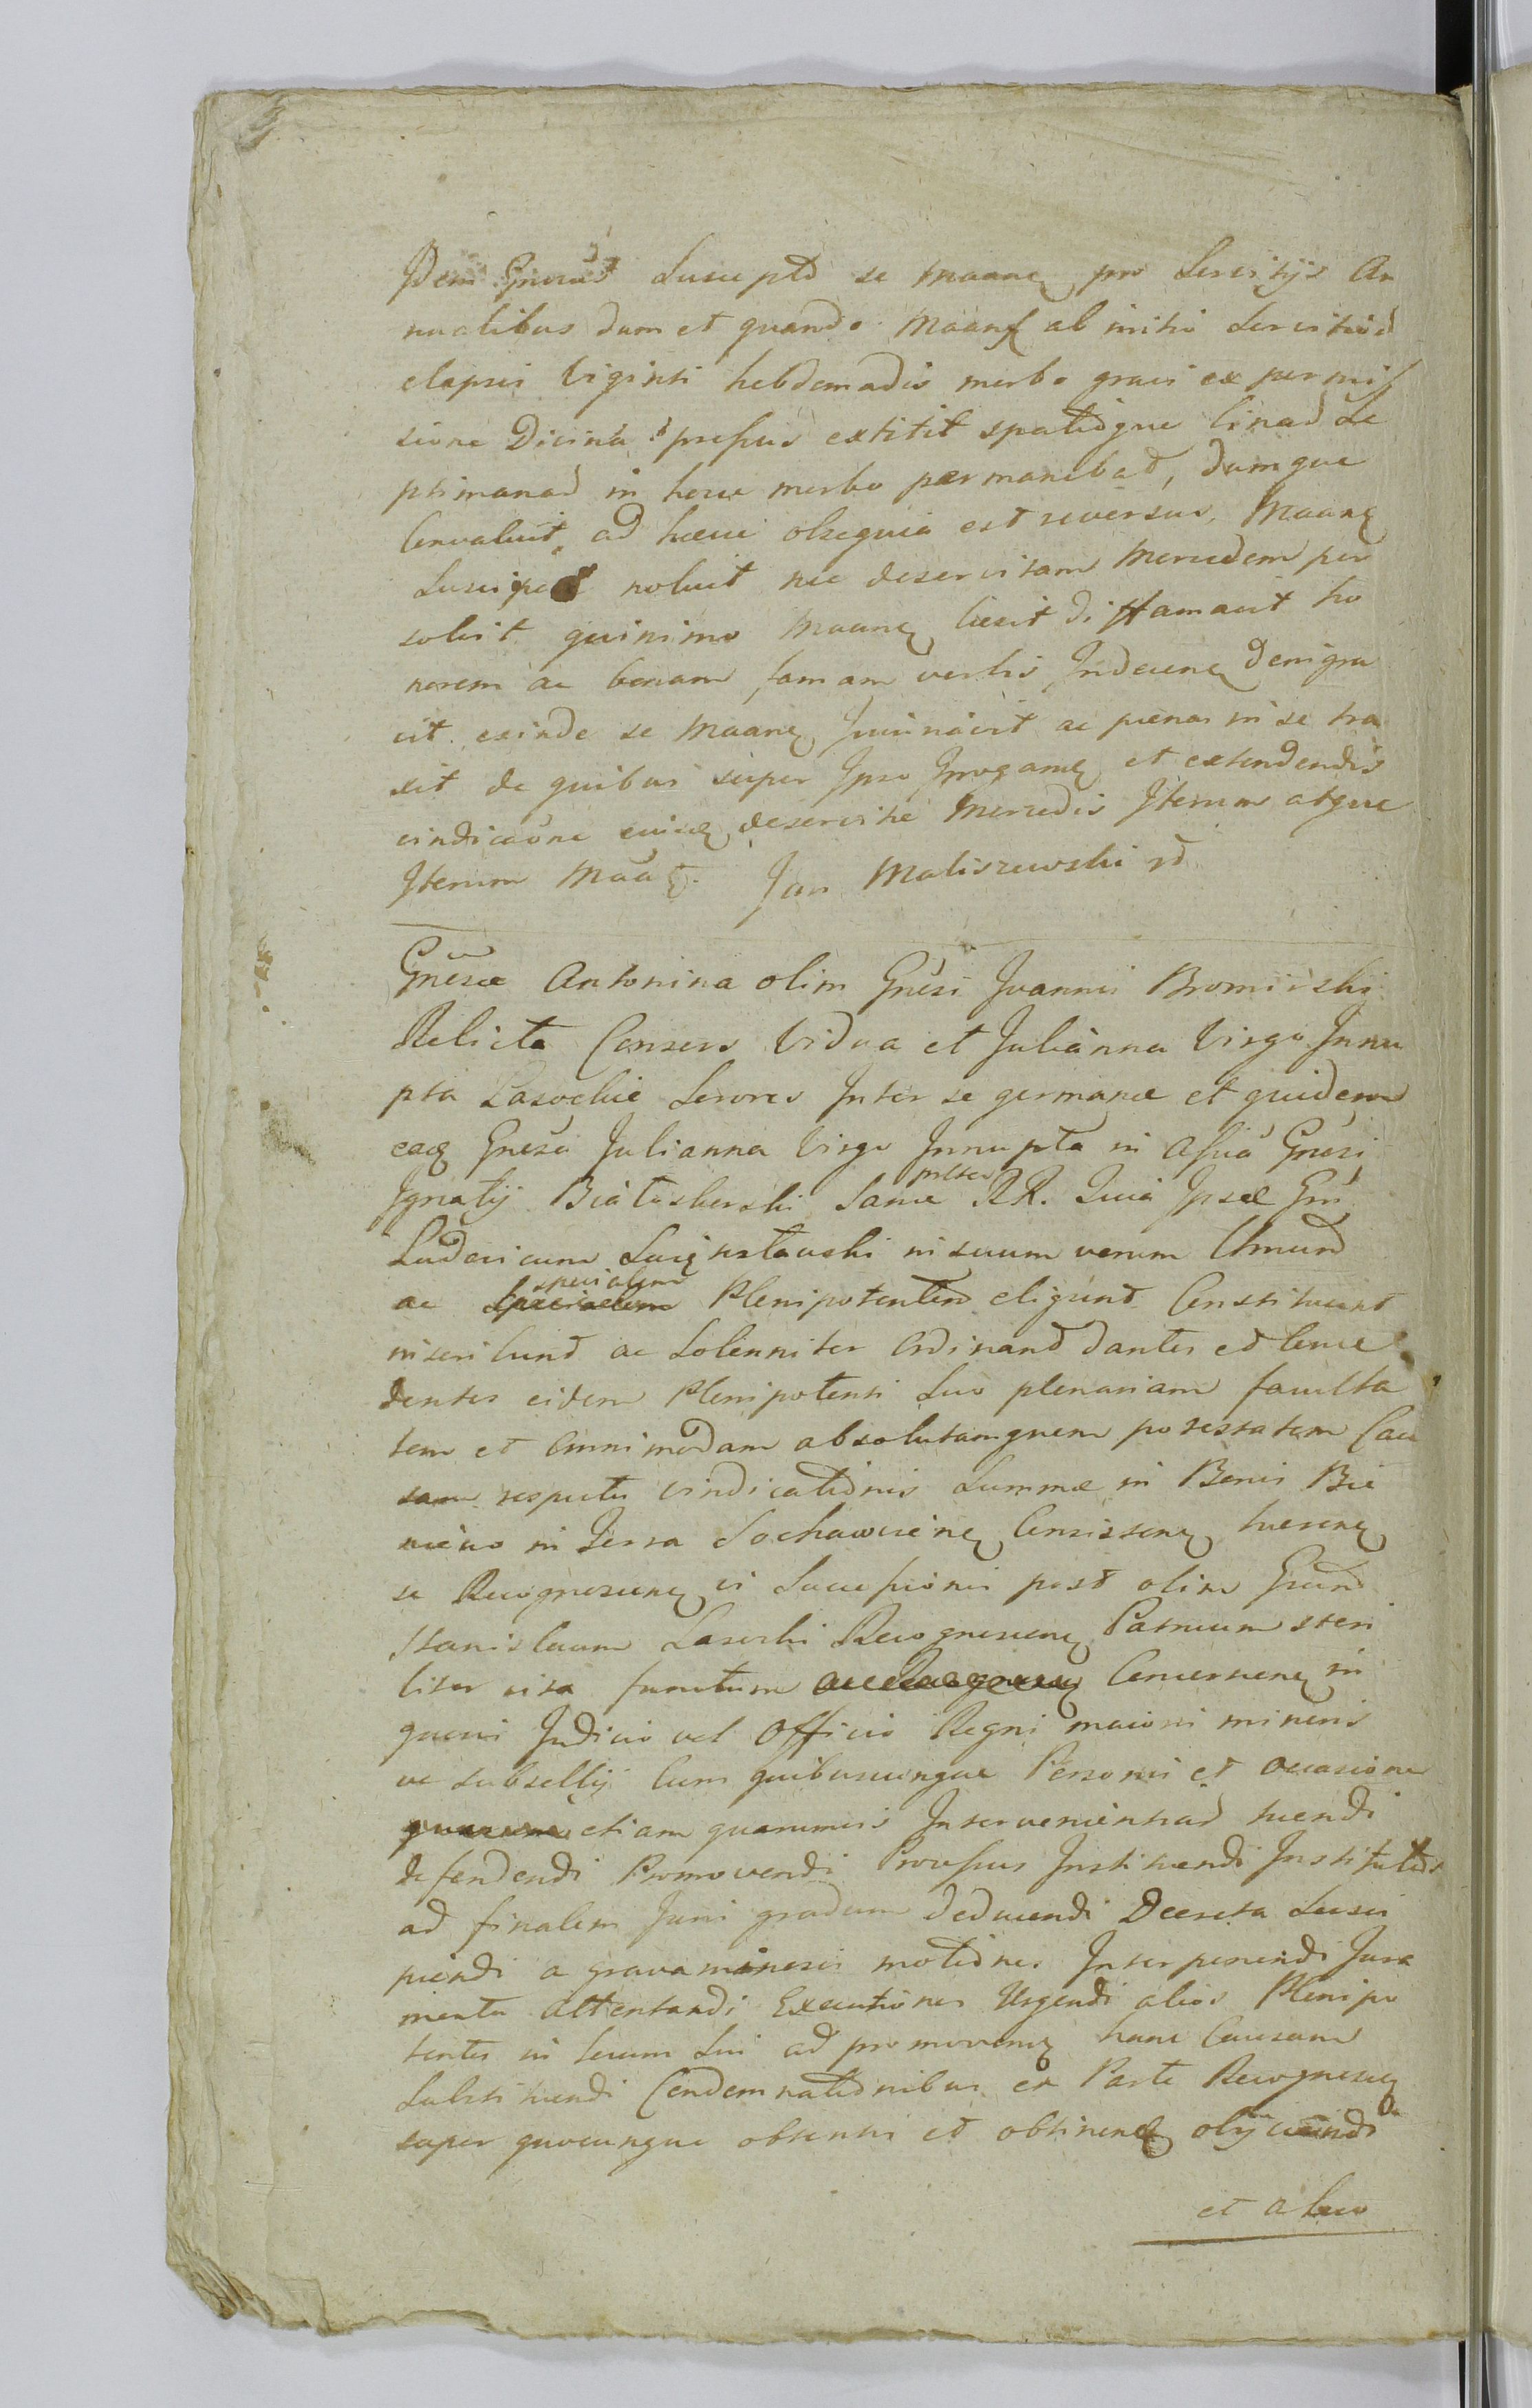 Idem Gnosus Susceptd se Maanę pro Servitijs An
nualibus dum et quando Maanș ab initio Servitiod
elapsis Viginti hebdomadis morbo gravi ex permis
sione Divina pressus extitit spatioque binad Se
ptimanad in hocce morbo permanebad, dumque
Convaluit, ad haecce obsequia est reversus, Maanę
Suscipe noluit nec deservitam Mercedem per
solvit quinimo Maanę laesit diffamavit ho
norem ac bonam famam verbis Indecenę denigra
vit exinde se Maanę Iniuriavit ac paenas in se tra
xit de quibus super Ipso Irrogamę et extendendis
vindicaone eaieę deservitae Mercedis Iterum atque
Iterum Maaę. Jan Maliszewski
Gnesae Antonina olim Gnesi Joannis Bromirski
Relicta Consors Vidua et Julianna Virgo Innu
pta Lasockie Sorores Inter se germanae et quidem
eaę Gnesa Julianna Virgo Innupta in Assńa Gnosi
Ignatij Białoskorski Same RR. Quia Ipsae Gn
Ludovicum in suum verum Omund
ac specialem Plenipotentem eligund Constituunt
inscribund ac Solenniter Ordinand dantes et Conce
dentes eidem Plenipotenti Suo plenariam faculta
tem et Omnimodam absolutamquem potestatem Cau
sam respectu vindicationis Summae in Bonis Bie
niewo in Terra Sochaczewienę Consistenę haerenę
se Recognoscenę ei Successionis post olim Gnund
Stanislaum Lasocki Recognoscenę Patruum steri
liter vita functum Concernenę in
quovi Judicio vel Officio Regni maioris minoris
ve subsellij Cum quibuscunque Personis et occasione
etiam quarumvis Intervenientiad tuendi
defendendi Promovendi Processus Instituendi Institutos
ad finalem Juris gradum deducendi Decreta Susci
piendi a gravaminosis motiones Interponendi Jura
menta attentandi Executiones Urgendi alios Plenipo
tentes in locum Sui ad promovenę hanc Causam
Substituendi Condemnationibus ex Parte Recognoscę
super quocunque obtentis et obtinenę obijciendi
et a loco